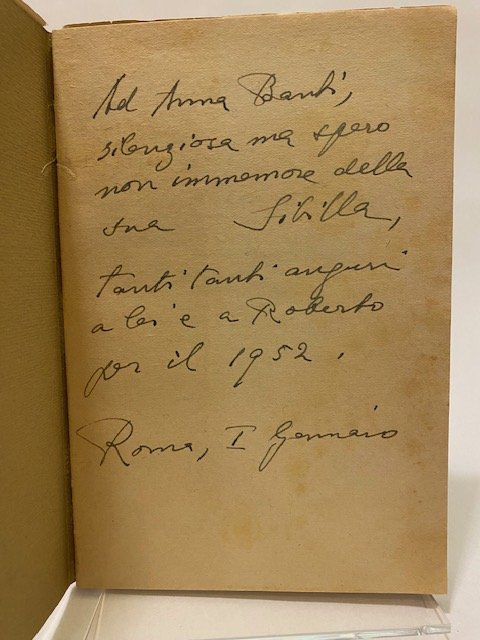 Ad Anna Banti,
silenziosa ma spero
non immemore della
sua Sibilla,
tanti tanti auguri
a lei e a Roberto
per il 1952.
Roma, I Gennaio